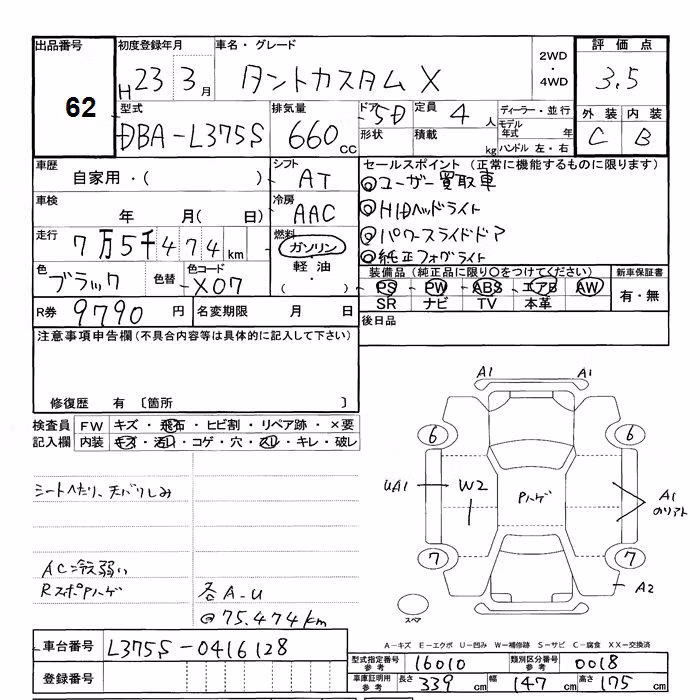 出品番号
62
初度登録年月
H 23 3 月
車名・グレード
タントカスタム X
2WD
・
4WD
評価点
3.5
外装 内装
C B
型式
DBA-L375S
排気量
660 CC
ドア 5D
形状
定員 4 人
積載 kg
ディーラー・並行
モデル年式 年
ハンドル 左・右
車歴
自家用・( )
シフト
AT
車検
年 月( 日)
冷房
AAC
走行
7万5千474 km
燃料
ガソリン
・
軽油
・
( )
色
ブラック
色替
色コード
X07
セールスポイント (正常に機能するものに限ります)
◎ユーザー買取車
◎HIDヘッドライト
◎パワースライドドア
◎純正フォグライト
装備品 (純正品に限り○をつけてください)
PS・PW・ABS・エアB・AW
SR ナビ TV 本革
新車保証書
有・無
R券 9790 円
名変期限 月 日
後日品
注意事項申告欄(不具合内容等は具体的に記入して下さい)
修復歴 有 〔箇所 〕
検査員
記入欄
FW キズ・飛石・ヒビ割・リペア跡・×要
内装 キズ・汚レ・コゲ・穴・スレ・キレ・破レ
シートへたり、天バリしみ
AC冷え弱い
RスポPハゲ
各A-U
@75.474km
A1 A1
6 6
UA1 W2 Pハゲ A1
7 7
A2
スペア
A-キズ E-エクボ U-凹み W-補修跡 S-サビ C-腐食 XX-交換済
車台番号 L375S-0416128
登録番号
型式指定番号
参考
16010
類別区分番号
参考
0018
車庫証明用
参考
長さ 339 cm 幅 147 cm 高さ 175 cm